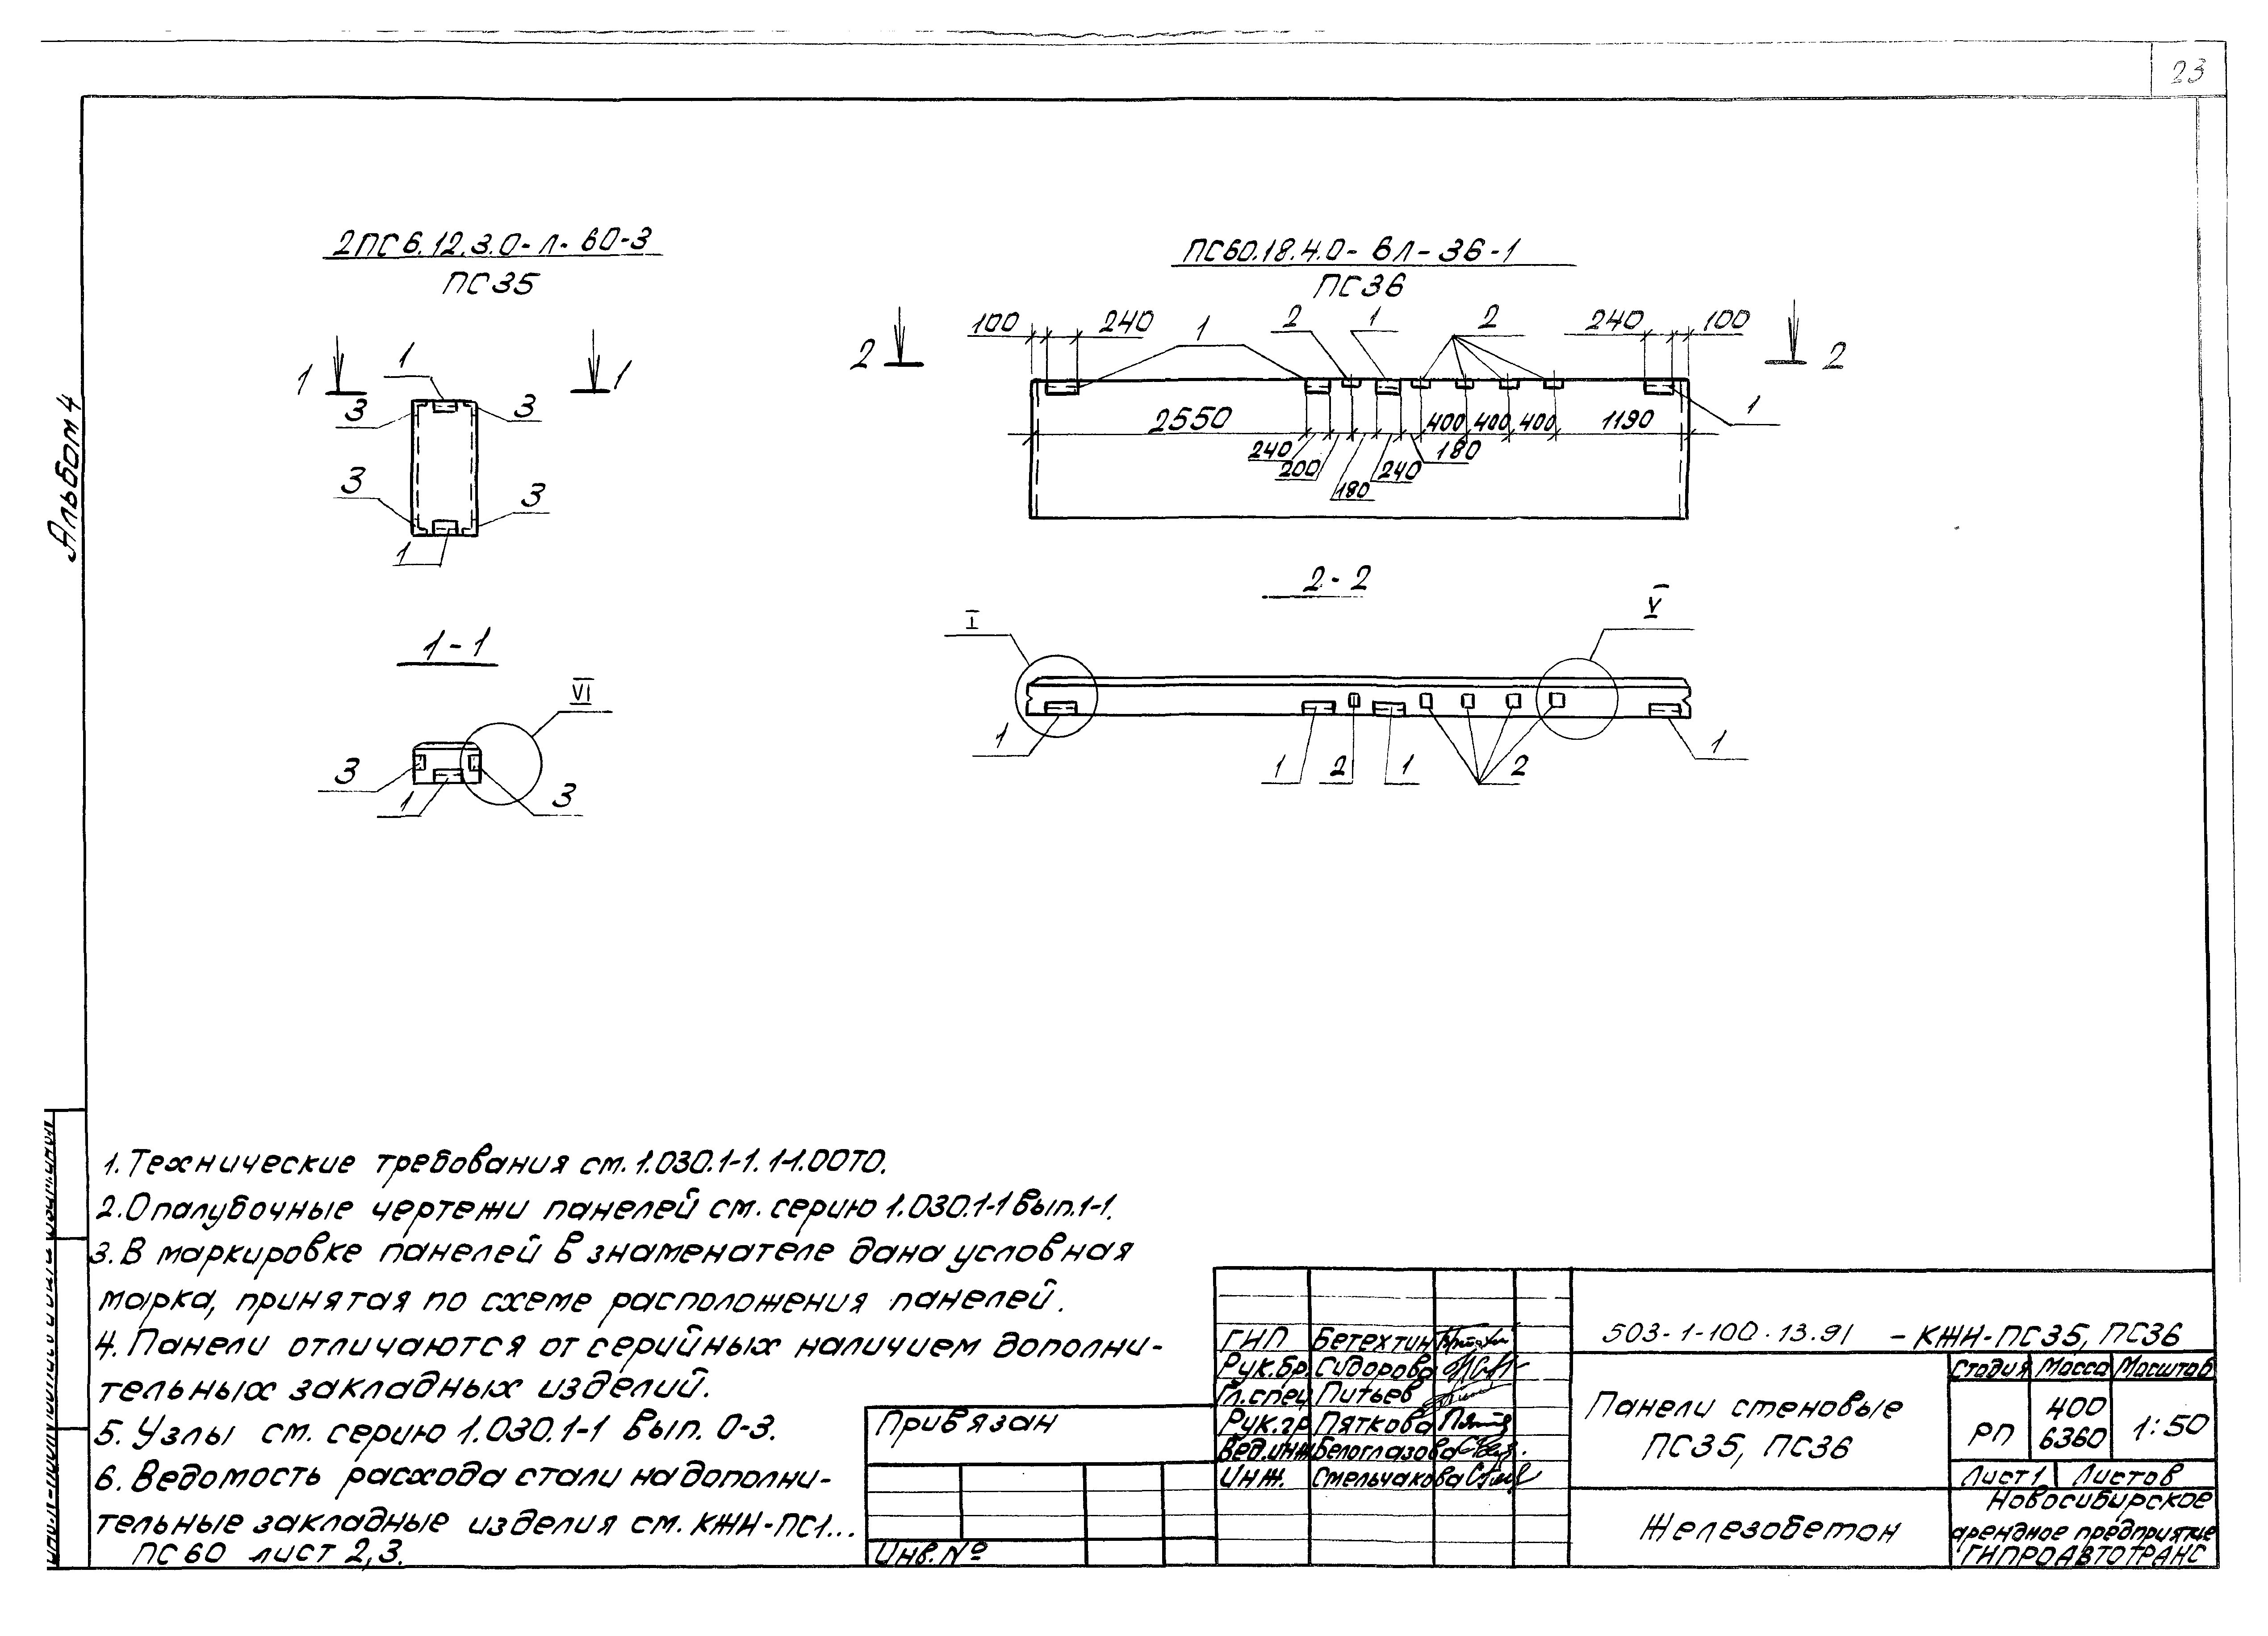 23
Альбом 4
2ПС 6.12.3.0-Л-60-3
ПС35
1
1
1
3
3
3
3
1
1-1
VI
3
1
3
ПС60.18.4.0-6Л-36-1
ПС36
100 240 1 2 1 2 240 100
2
2
1
2550 400 400 400 1190
240 200 180 240 180
2-2
I
V
1 1 2 1 2 1
1. Технические требования см. 1.030.1-1. 1-1.00ТО.
2. Опалубочные чертежи панелей см. серию 1.030.1-1 Вып.1-1.
3. В маркировке панелей в знаменателе дана условная
марка, принятая по схеме расположения панелей.
4. Панели отличаются от серийных наличием дополни-
тельных закладных изделий.
5. Узлы см. серию 1.030.1-1 Вып. 0-3.
6. Ведомость расхода стали на дополни-
тельные закладные изделия см. КЖИ-ПС1...
ПС60 лист 2,3.
Привязан
Инв. №
ГИП Бетехтин
Рук.бр. Сидорова
Гл.спец Питьев
Рук.гр Пяткова
Вед.инж Белоглазова
Инж. Смельчакова
503-1-100.13.91 - КЖИ-ПС35, ПС36
Панели стеновые
ПС35, ПС36
Стадия Масса Масштаб
РП 400 6360 1:50
Лист 1 Листов
Железобетон
Новосибирское
арендное предприятие
ГИПРОАВТОТРАНС